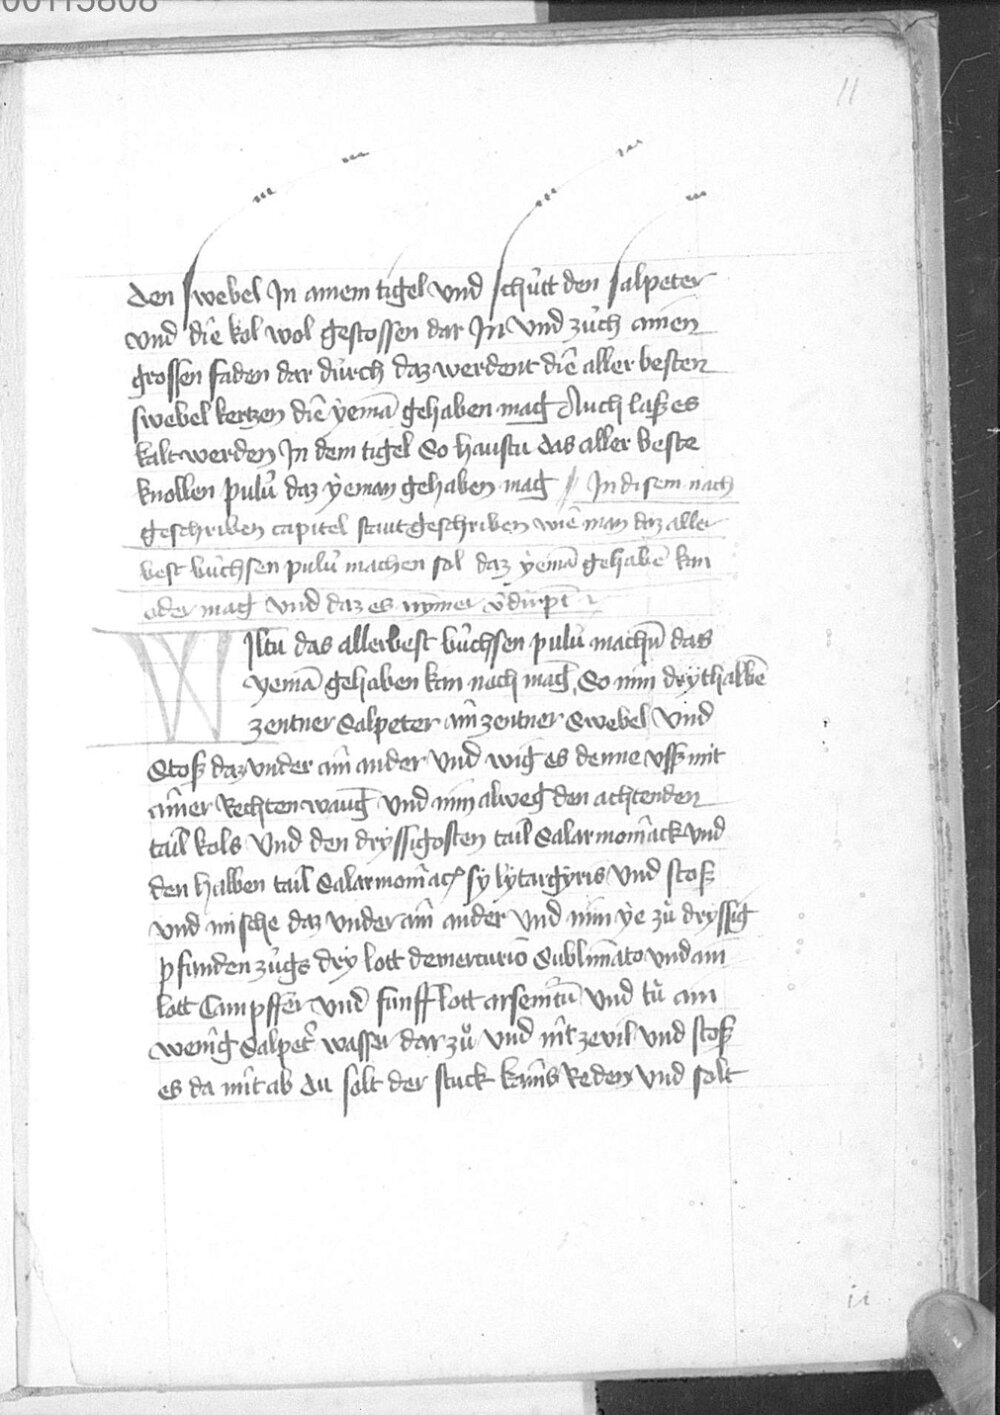 00113808
11
den swebel Jn ainem tigel vnd schütt den salpeter
vnd die kol wol gestossen dar Jn vnd züch ainen
grossen faden dar durch daz werdent die aller besten
swebel kertzen die yemā gehaben mag Auch laß es
kalt werden Jn dem tigel So haustu das aller beste
knollen pulu̓ daz yeman gehaben mag // Jn disem nach
geschriben capitel staut geschriben wie man daz aller
best büchsen pulu̓ machen sol daz yemā gehabē kan
oder mag vnd daz es nymer v̄dirpt
Wiltu das allerbest büchsen pulu̓ machn̄ das
yemā gehaben kan nach mag, So nim drythalbē
zentner Salpeter ain zentner Swebel vnd
Stoß daz vnder ain ander vnd wig es denne vss mit
ainer Rechten waug vnd nim alweg den achtenden
tail kols vnd den dryssigosten tail Salarmoniack vnd
den halben tail Salarmoniack sy lytargyris vnd stoß
vnd mische daz vnder ain ander vnd nim ye zů dryssig
pfunden zügs dry lott demercuriō Sublimato vnd ain
lott Campffer vnd funff lott arsenicū vnd tů ain
wenig Salpet̓ wasser dar zů vnd nit zevil vnd stoß
es da mit ab du solt der stuck kains Reden vnd solt